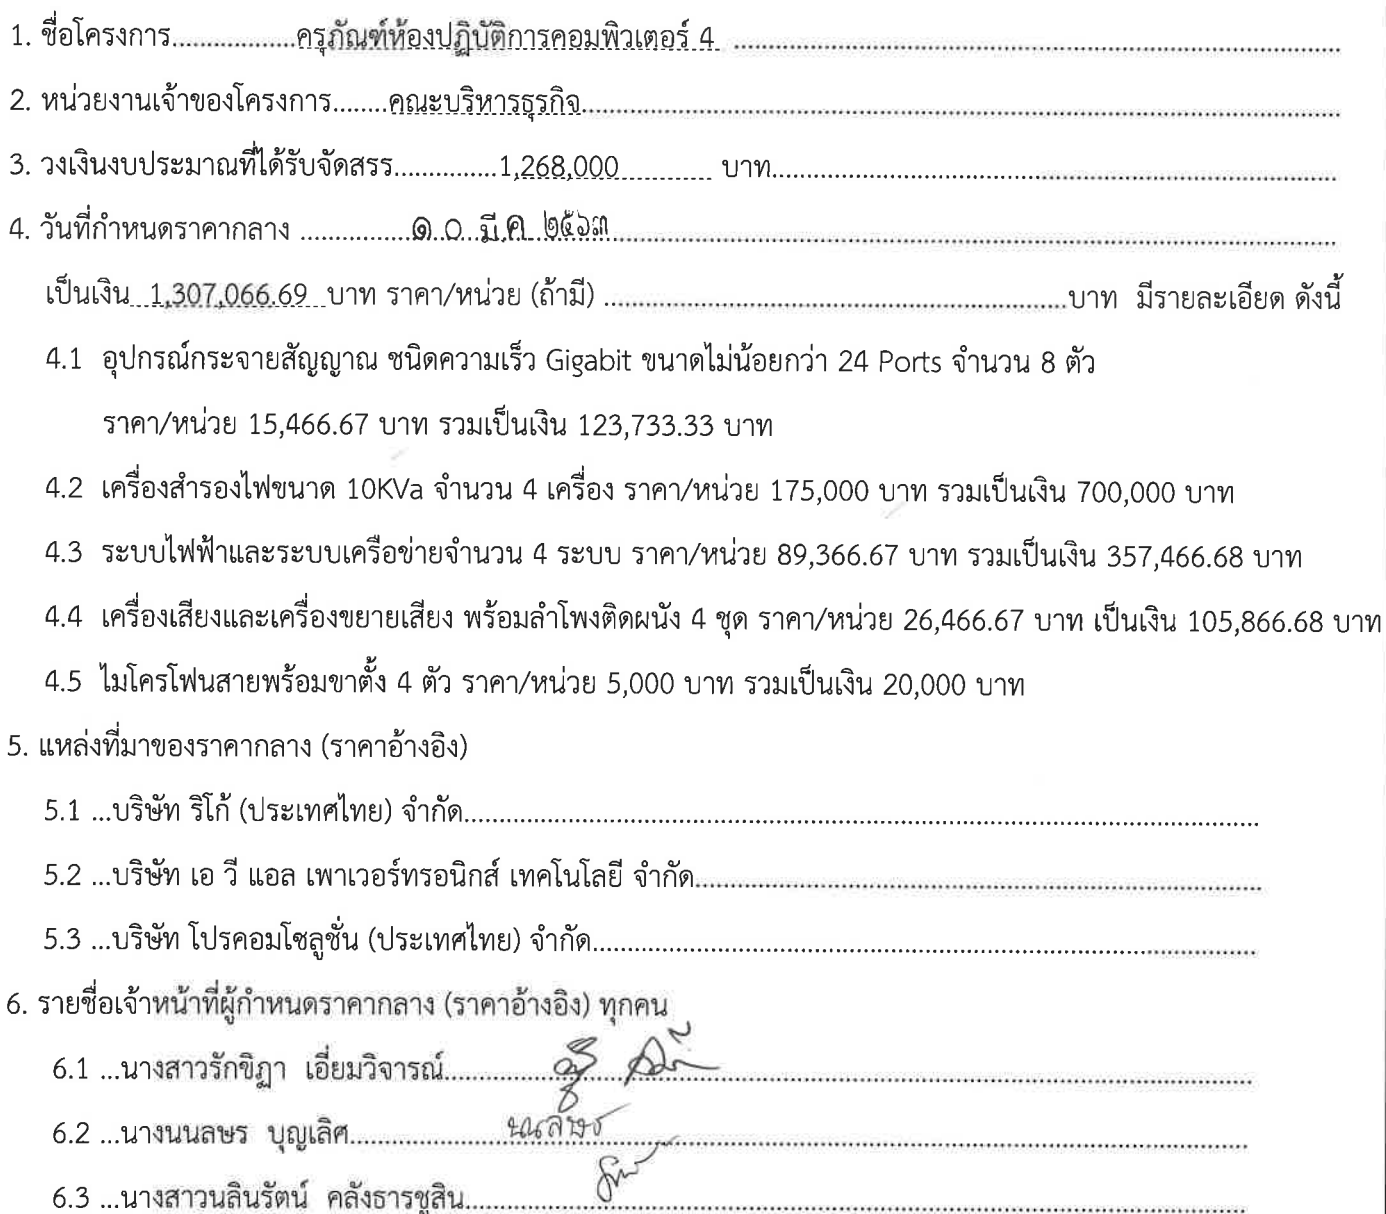 1. ชื่อโครงการ.................ครุภัณฑ์ห้องปฏิบัติการคอมพิวเตอร์ 4 ..................................................
2. หน่วยงานเจ้าของโครงการ........คณะบริหารธุรกิจ..................................................
3. วงเงินงบประมาณที่ได้รับจัดสรร...............1,268,000............. บาท..................................................
4. วันที่กำหนดราคากลาง ................๑ ๐ มี.ค. ๒๕๖๓..................................................
เป็นเงิน...1,307,066.69...บาท ราคา/หน่วย (ถ้ามี) ..................................................บาท มีรายละเอียด ดังนี้
4.1 อุปกรณ์กระจายสัญญาณ ชนิดความเร็ว Gigabit ขนาดไม่น้อยกว่า 24 Ports จำนวน 8 ตัว
ราคา/หน่วย 15,466.67 บาท รวมเป็นเงิน 123,733.33 บาท
4.2 เครื่องสำรองไฟขนาด 10KVa จำนวน 4 เครื่อง ราคา/หน่วย 175,000 บาท รวมเป็นเงิน 700,000 บาท
4.3 ระบบไฟฟ้าและระบบเครือข่ายจำนวน 4 ระบบ ราคา/หน่วย 89,366.67 บาท รวมเป็นเงิน 357,466.68 บาท
4.4 เครื่องเสียงและเครื่องขยายเสียง พร้อมลำโพงติดผนัง 4 ชุด ราคา/หน่วย 26,466.67 บาท เป็นเงิน 105,866.68 บาท
4.5 ไมโครโฟนสายพร้อมขาตั้ง 4 ตัว ราคา/หน่วย 5,000 บาท รวมเป็นเงิน 20,000 บาท
5. แหล่งที่มาของราคากลาง (ราคาอ้างอิง)
5.1 ...บริษัท ริโก้ (ประเทศไทย) จำกัด..................................................
5.2 ...บริษัท เอ วี แอล เพาเวอร์ทรอนิกส์ เทคโนโลยี จำกัด..................................................
5.3 ...บริษัท โปรคอมโซลูชั่น (ประเทศไทย) จำกัด..................................................
6. รายชื่อเจ้าหน้าที่ผู้กำหนดราคากลาง (ราคาอ้างอิง) ทุกคน
6.1 ...นางสาวรักขิฏา เอี่ยมวิจารณ์..................................................
6.2 ...นางนนลษร บุญเลิศ....................นนลษร..............................
6.3 ...นางสาวนลินรัตน์ คลังธารชูสิน..................................................